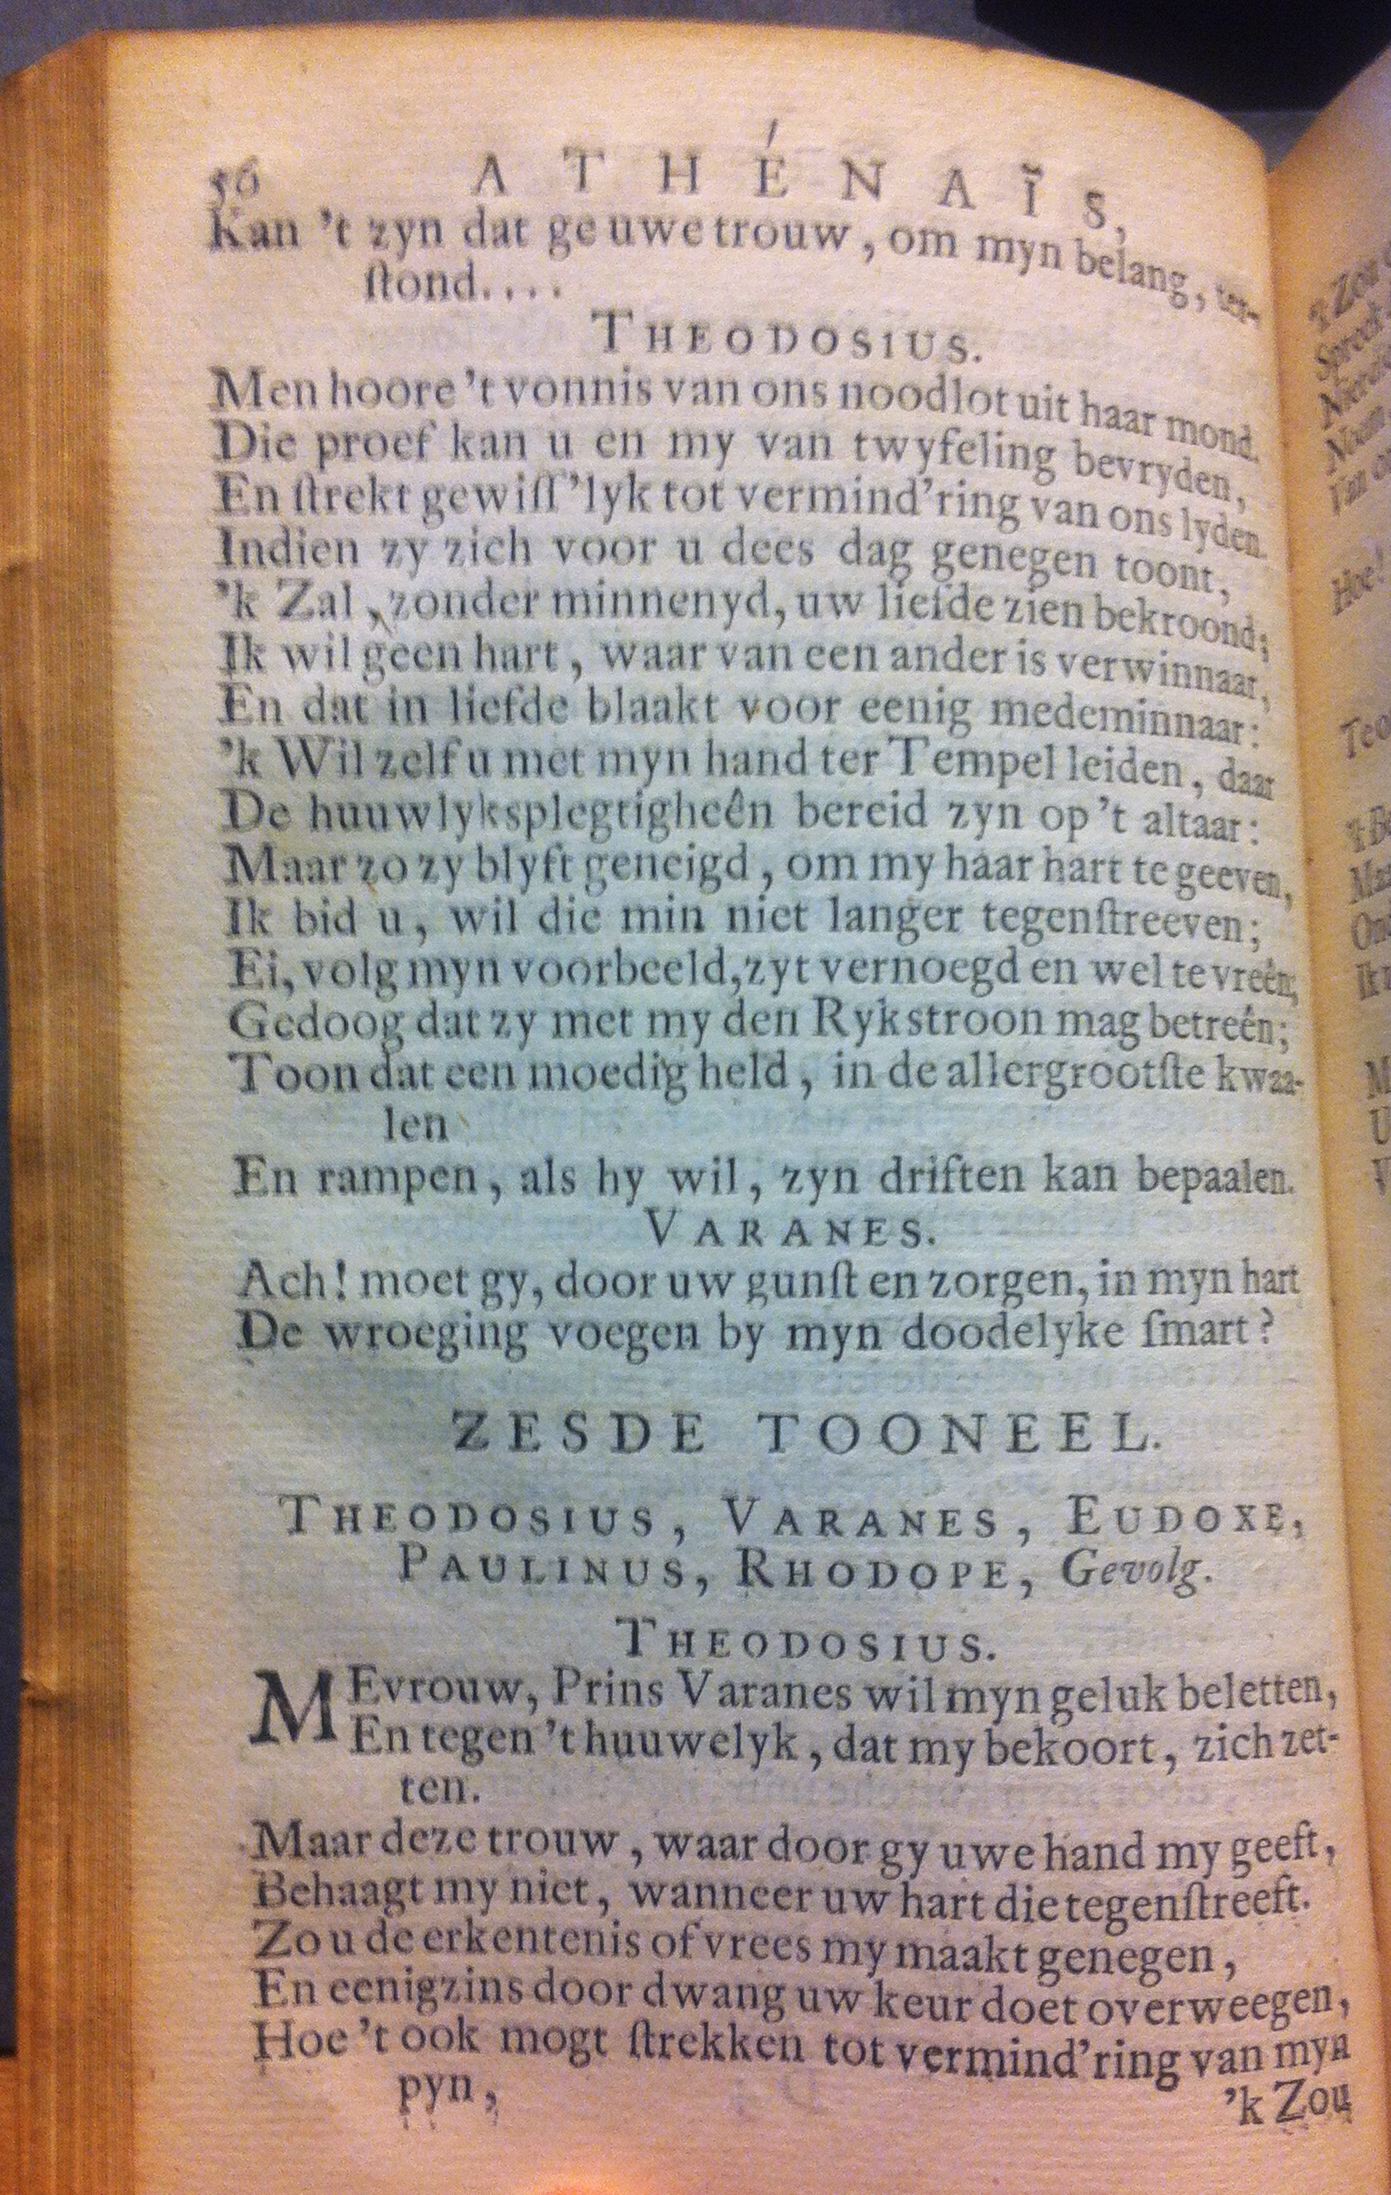 56 ATHÉNAÏS,
Kan 't zyn dat ge uwe trouw, om myn belang, ter-
ſtond....
THEODOSIUS.
Men hoore 't vonnis van ons noodlot uit haar mond.
Die proef kan u en my van twyfeling bevryden,
En ſtrekt gewiſſ'lyk tot vermind'ring van ons lyden.
Indien zy zich voor u dees dag genegen toont,
'k Zal, zonder minnenyd, uw liefde zien bekroond;
Ik wil geen hart, waar van een ander is verwinnaar,
En dat in liefde blaakt voor eenig medeminnaar:
'k Wil zelf u met myn hand ter Tempel leiden, daar
De huuwlyksplegtigheên bereid zyn op 't altaar:
Maar zo zy blyft geneigd, om my haar hart te geeven,
Ik bid u, wil die min niet langer tegenſtreeven;
Ei, volg myn voorbeeld, zyt vernoegd en wel te vreên;
Gedoog dat zy met my den Rykstroon mag betreên;
Toon dat een moedig held, in de allergrootſte kwaa-
len
En rampen, als hy wil, zyn driften kan bepaalen.
VARANES.
Ach! moet gy, door uw gunſt en zorgen, in myn hart
De wroeging voegen by myn doodelyke ſmart?
ZESDE TOONEEL.
THEODOSIUS, VARANES, EUDOXE,
PAULINUS, RHODOPE, Gevolg.
THEODOSIUS.
MEvrouw, Prins Varanes wil myn geluk beletten,
En tegen 't huuwelyk, dat my bekoort, zich zet-
ten.
Maar deze trouw, waar door gy uwe hand my geeft,
Behaagt my niet, wanneer uw hart die tegenſtreeft.
Zo u de erkentenis of vrees my maakt genegen,
En eenigzins door dwang uw keur doet overweegen,
Hoe 't ook mogt ſtrekken tot vermind'ring van myn
pyn,
'k Zou